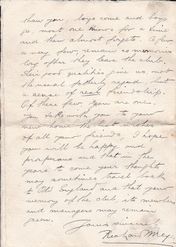 than you. boys come and boys
go, most one knows for a time
and then almost forgets. But
a very few, remain as memories
long after they leave the club,
their good qualities give us not
the usual fatherly regard, but
a sense of real friendship.
Of these few you are one.
you go with you to your
new home the
of all your friends, I hope
you will be happy and
prosperous and that in the
years to come your thoughts
may sometimes travel back
to Old England and that your
memory of the club, its members
and managers may remain
green.
Yours sincerely